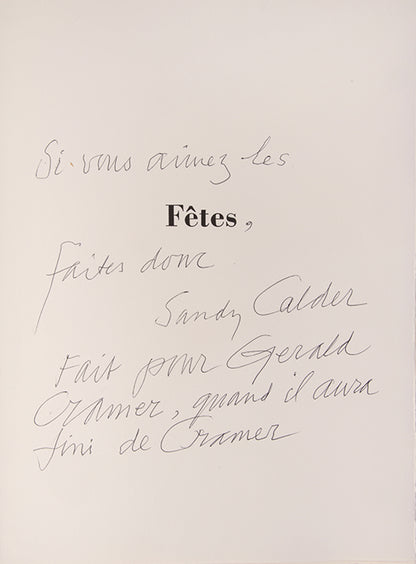 Si vous aimez les
Fêtes,
faites donc
Sandy Calder
Fait pour Gerald
Cramer, quand il aura
fini de Cramer